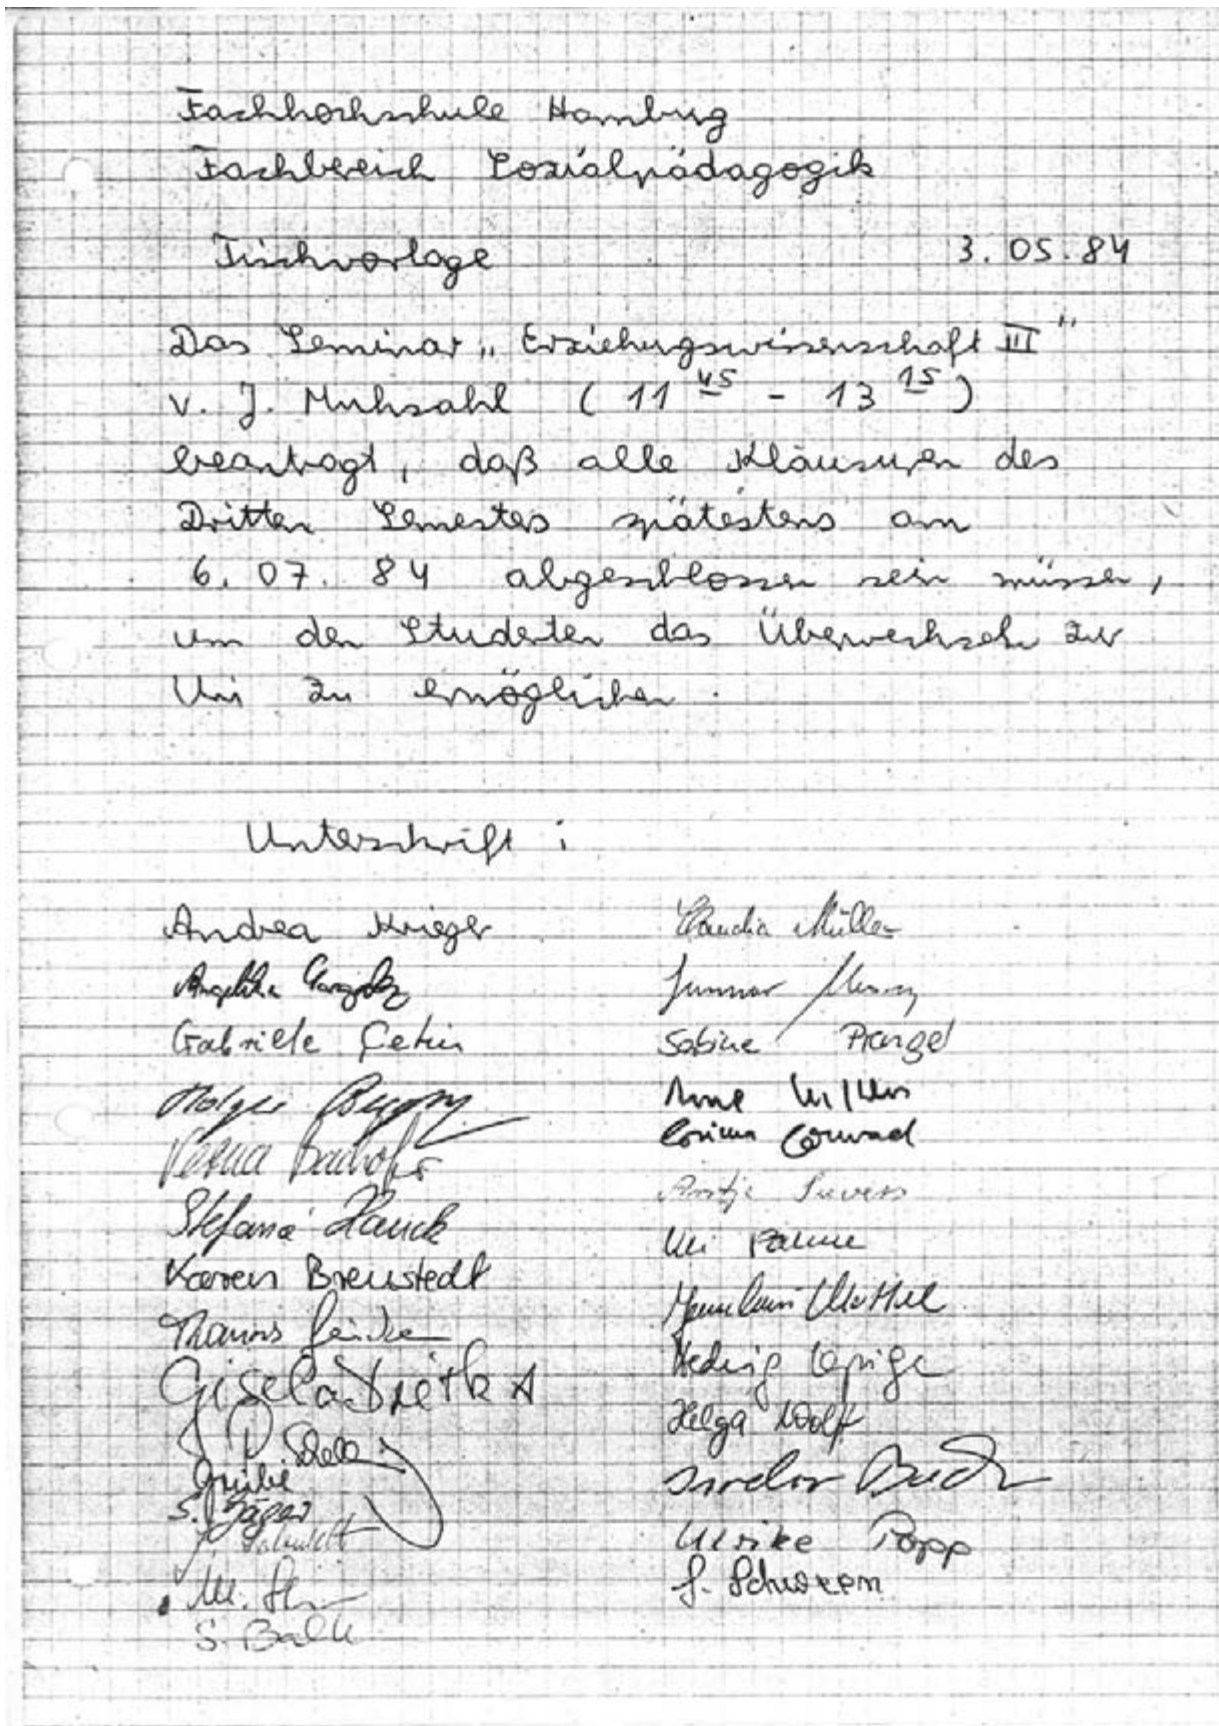 Fachhochschule Hamburg
Fachbereich Sozialpädagogik
Tischvorlage 3.05.84
Das Seminar „Erziehungswissenschaft III"
v. J. Muhsahl (11 45 - 13 15)
beantragt, daß alle Klausuren des
Dritten Semesters spätestens am
6.07.84 abgeschlossen sein müssen,
um den Studenten das Überwechseln zur
Uni zu ermöglichen.
Unterschrift:
Andrea Krieger
Angelika
Gabriele Çetin
Holger
Verena
Stefanie Hauck
Karen Breustedt
Thomas
Gisela
S. Jäger
S. Balk
Claudia Müller
Gunnar
Sabine Prangel
Anne
Corinna Conrad
Antje Sievers
Uli Palme
Hedwig
Helga Wolff
Ulrike Popp